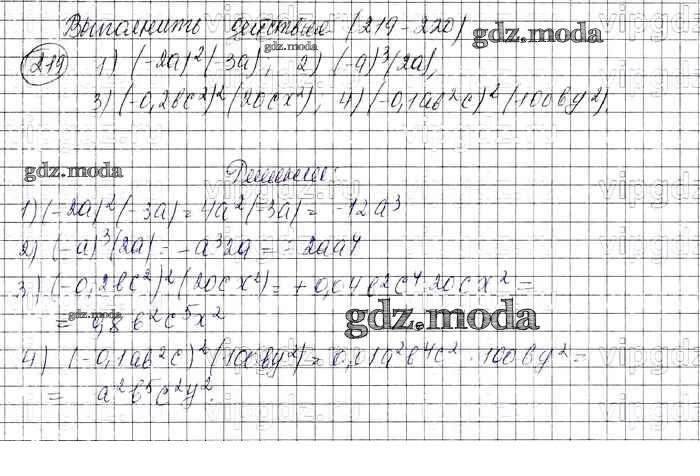 Выполнить действия (219-220)
gdz.moda
219 1) (-2a)²(-3a), 2) (-a)³(2a),
gdz.moda
3) (-0,2bc²)²(20cx²), 4) (-0,1ab²c)²(-100by²).
gdz.moda
Решение:
1) (-2a)²(-3a) = 4a²(-3a) = -12a³
2) (-a)³(2a) = -a³2a = -2aa⁴
3) (-0,2bc²)²(20cx²) = +0,04b²c⁴·20cx² =
= 0,8b²c⁵x²
gdz.moda
gdz.moda
4) (-0,1ab²c)²(100by²) = 0,01a²b⁴c²·100by² =
= a²b⁵c²y².
vipgdz.ru